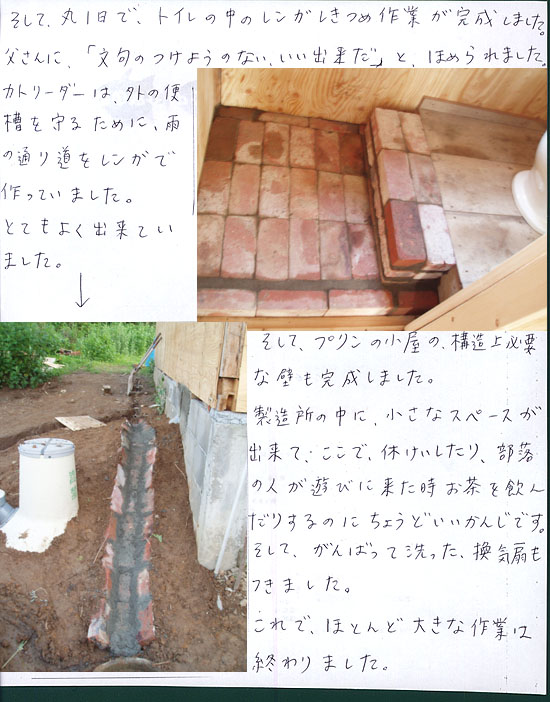 そして、丸1日で、トイレの中のレンガしきつめ作業が完成しました。
父さんに、「文句のつけようのない、いい出来だ」と、ほめられました。
カトリーダーは、外の便
槽を守るために、雨
の通り道をレンガで
作っていました。
とてもよく出来てい
ました。
↓
そして、プリンの小屋の、構造上必要
な壁も完成しました。
製造所の中に、小さなスペースが
出来て、ここで、休けいしたり、部落
の人が遊びに来た時お茶を飲ん
だりするのにちょうどいいかんじです。
そして、がんばって洗った、換気扇も
つきました。
これで、ほとんど大きな作業は
終わりました。